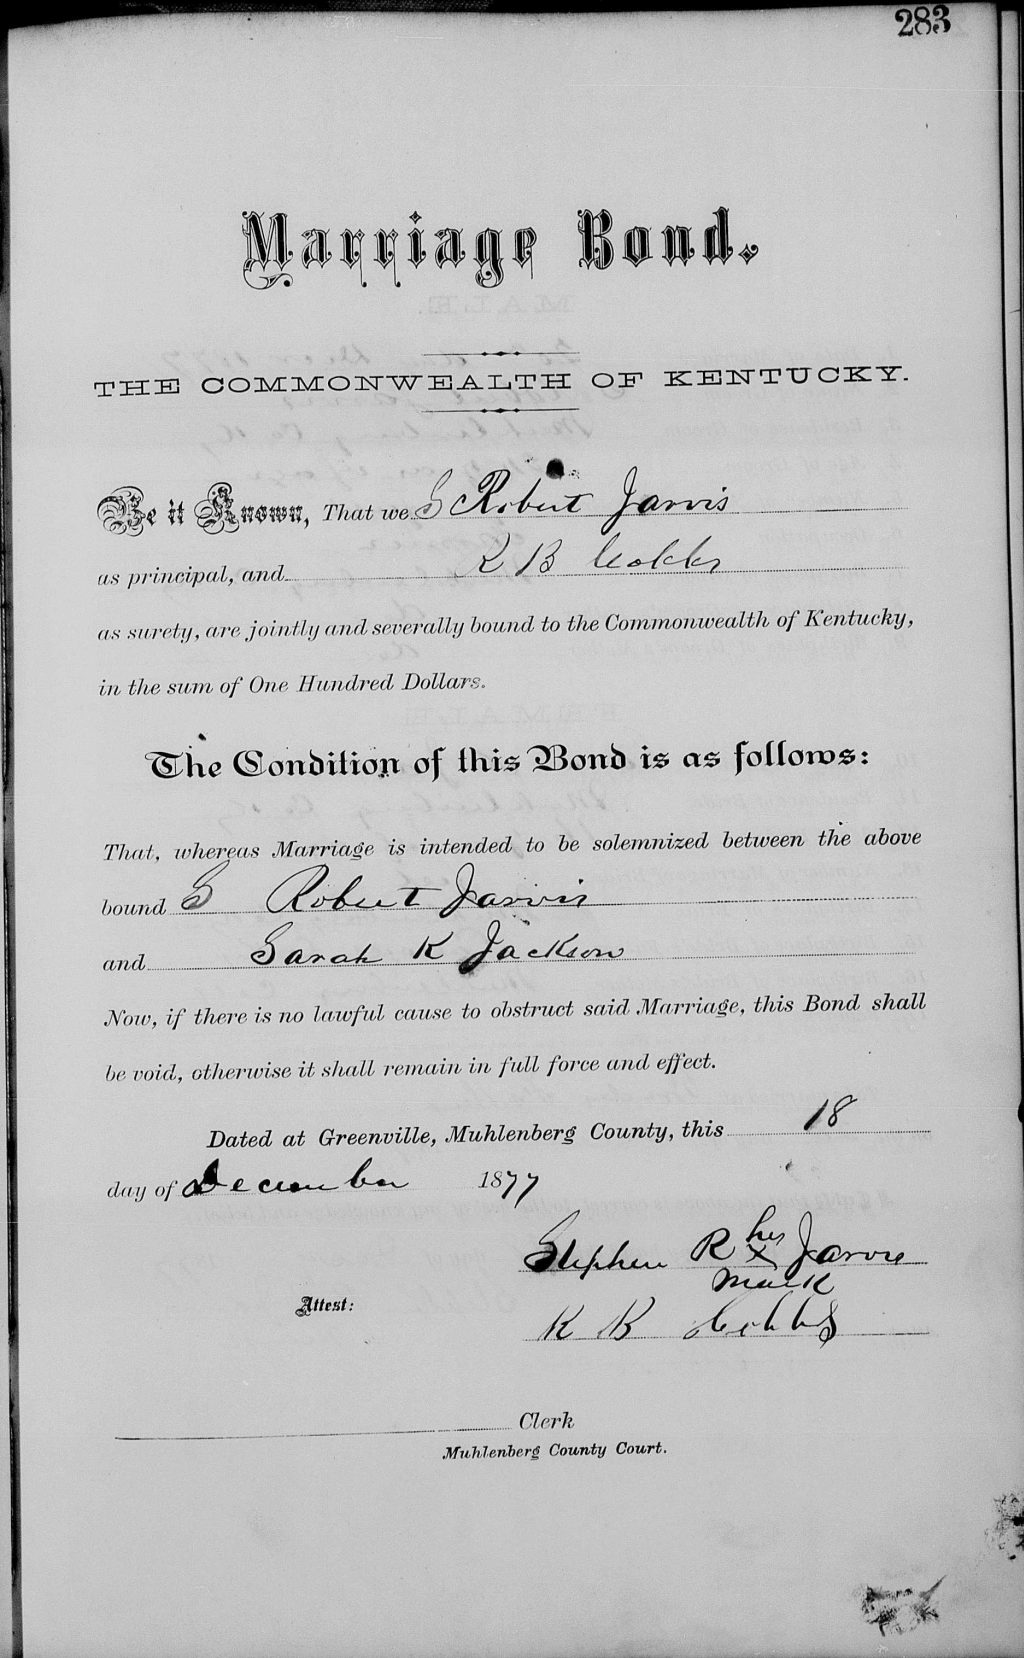 283
Marriage Bond.
THE COMMONWEALTH OF KENTUCKY.
Be it Known, That we S Robert Jarvis
as principal, and K B Cobbs
as surety, are jointly and severally bound to the Commonwealth of Kentucky,
in the sum of One Hundred Dollars.
The Condition of this Bond is as follows:
That, whereas Marriage is intended to be solemnized between the above
bound S Robert Jarvis
and Sarah K Jackson
Now, if there is no lawful cause to obstruct said Marriage, this Bond shall
be void, otherwise it shall remain in full force and effect.
Dated at Greenville, Muhlenberg County, this 18
day of December 1877
his
Stephen R x Jarvis
mark
Attest:
K B Cobbs
Clerk
Muhlenberg County Court.